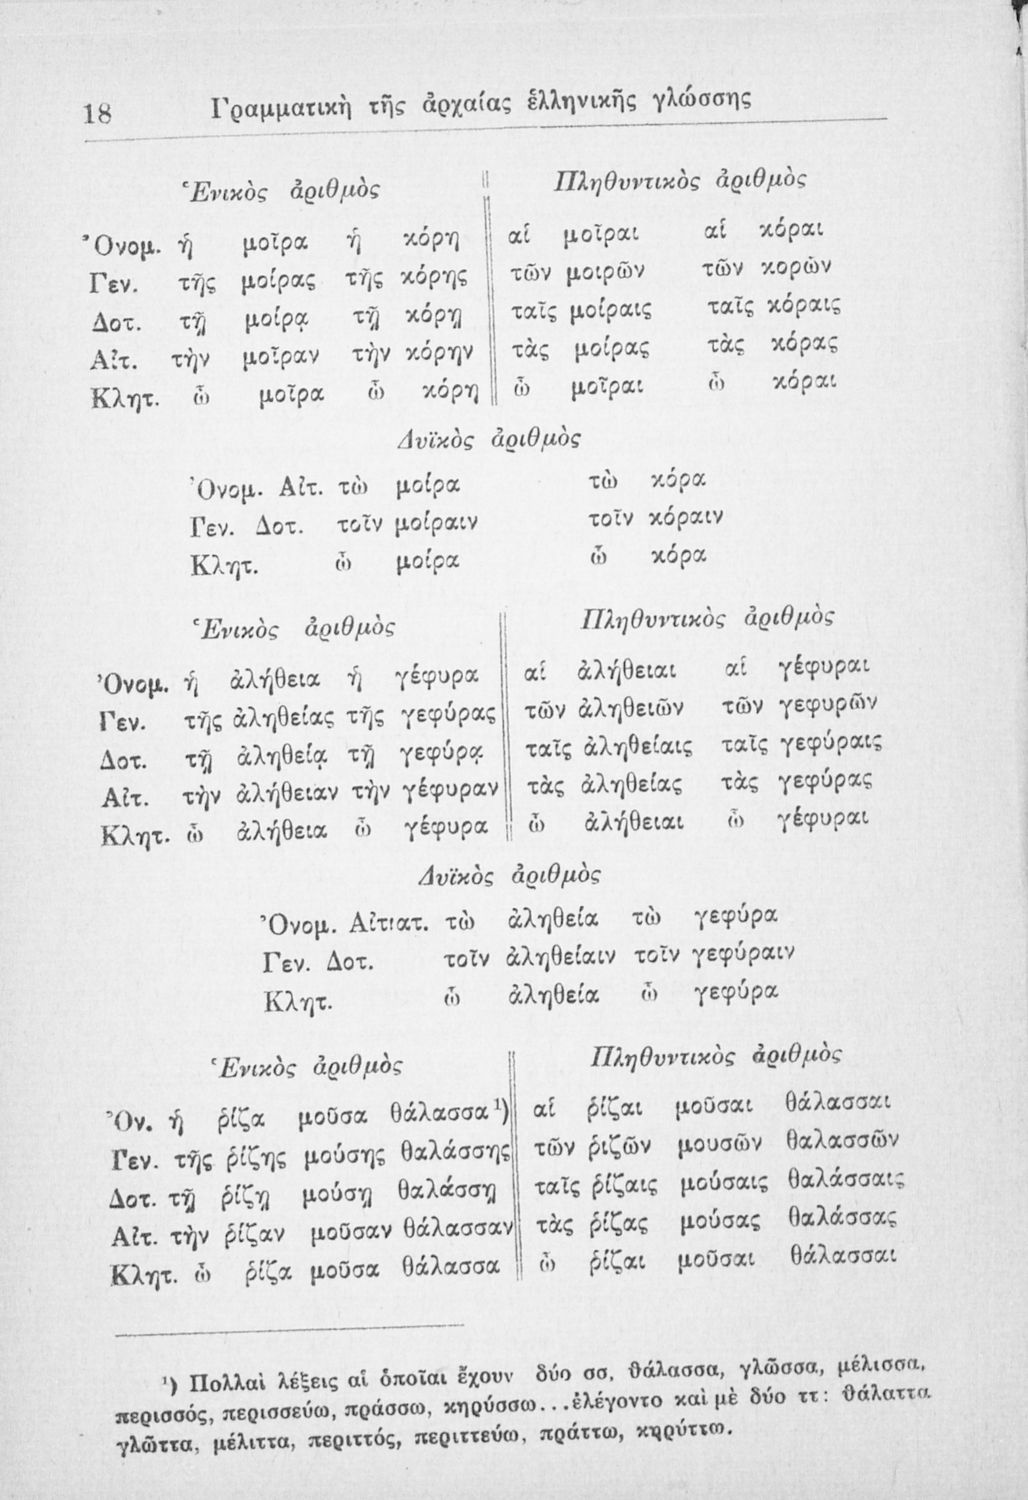 18 Γραμματικὴ τῆς ἀρχαίας ἑλληνικῆς γλώσσης
Ἑνικὸς ἀριθμὸς Πληθυντικὸς ἀριθμὸς
Ὀνομ. ἡ μοῖρα ἡ κόρη αἱ μοῖραι αἱ κόραι
Γεν. τῆς μοίρας τῆς κόρης τῶν μοιρῶν τῶν κορῶν
Δοτ. τῇ μοίρᾳ τῇ κόρῃ ταῖς μοίραις ταῖς κόραις
Αἰτ. τὴν μοῖραν τὴν κόρην τὰς μοίρας τὰς κόρας
Κλητ. ὦ μοῖρα ὦ κόρη ὦ μοῖραι ὦ κόραι
Δυϊκὸς ἀριθμὸς
Ὀνομ. Αἰτ. τὼ μοίρα τὼ κόρα
Γεν. Δοτ. τοῖν μοίραιν τοῖν κόραιν
Κλητ. ὦ μοίρα ὦ κόρα
Ἑνικὸς ἀριθμὸς Πληθυντικὸς ἀριθμὸς
Ὀνομ. ἡ ἀλήθεια ἡ γέφυρα αἱ ἀλήθειαι αἱ γέφυραι
Γεν. τῆς ἀληθείας τῆς γεφύρας τῶν ἀληθειῶν τῶν γεφυρῶν
Δοτ. τῇ ἀληθείᾳ τῇ γεφύρᾳ ταῖς ἀληθείαις ταῖς γεφύραις
Αἰτ. τὴν ἀλήθειαν τὴν γέφυραν τὰς ἀληθείας τὰς γεφύρας
Κλητ. ὦ ἀλήθεια ὦ γέφυρα ὦ ἀλήθειαι ὦ γέφυραι
Δυϊκὸς ἀριθμὸς
Ὀνομ. Αἰτιατ. τὼ ἀληθεία τὼ γεφύρα
Γεν. Δοτ. τοῖν ἀληθείαιν τοῖν γεφύραιν
Κλητ. ὦ ἀληθεία ὦ γεφύρα
Ἑνικὸς ἀριθμὸς Πληθυντικὸς ἀριθμὸς
Ὀν. ἡ ῥίζα μοῦσα θάλασσα ¹) αἱ ῥίζαι μοῦσαι θάλασσαι
Γεν. τῆς ῥίζης μούσης θαλάσσης τῶν ῥιζῶν μουσῶν θαλασσῶν
Δοτ. τῇ ῥίζῃ μούσῃ θαλάσσῃ ταῖς ῥίζαις μούσαις θαλάσσαις
Αἰτ. τὴν ῥίζαν μοῦσαν θάλασσαν τὰς ῥίζας μούσας θαλάσσας
Κλητ. ὦ ῥίζα μοῦσα θάλασσα ὦ ῥίζαι μοῦσαι θάλασσαι
¹) Πολλαὶ λέξεις αἱ ὁποῖαι ἔχουν δύο σσ, θάλασσα, γλῶσσα, μέλισσα,
περισσός, περισσεύω, πράσσω, κηρύσσω...ἐλέγοντο καὶ μὲ δύο ττ: θάλαττα
γλῶττα, μέλιττα, περιττός, περιττεύω, πράττω, κηρύττω.